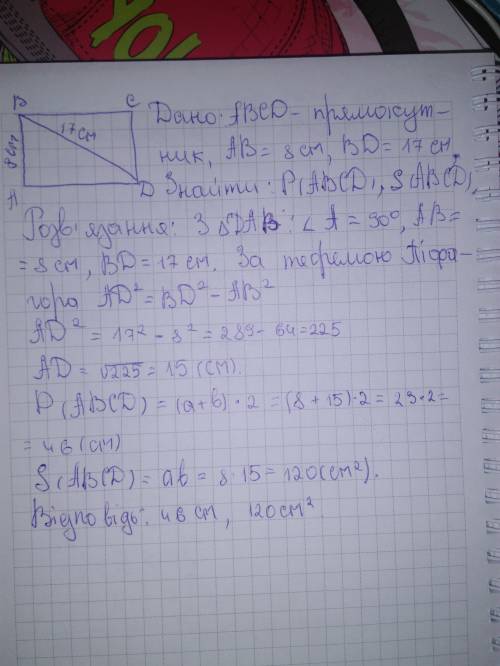 YOU
B C
17см
8см
A D
Дано: ABCD – прямокут-
ник, AB = 8см, BD = 17см
Знайти: P(ABCD), S(ABCD),
Розв'язання: З △DAB: ∠A = 90°, AB=
= 8см, BD = 17см. За теоремою Піфа-
гора AD² = BD² - AB²
AD² = 17² - 8² = 289 - 64 = 225
AD = √225 = 15 (см).
P(ABCD) = (a+b)·2 = (8+15)·2 = 23·2 =
= 46 (см)
S(ABCD) = ab = 8·15 = 120 (см²).
Відповідь: 46 см, 120 см².